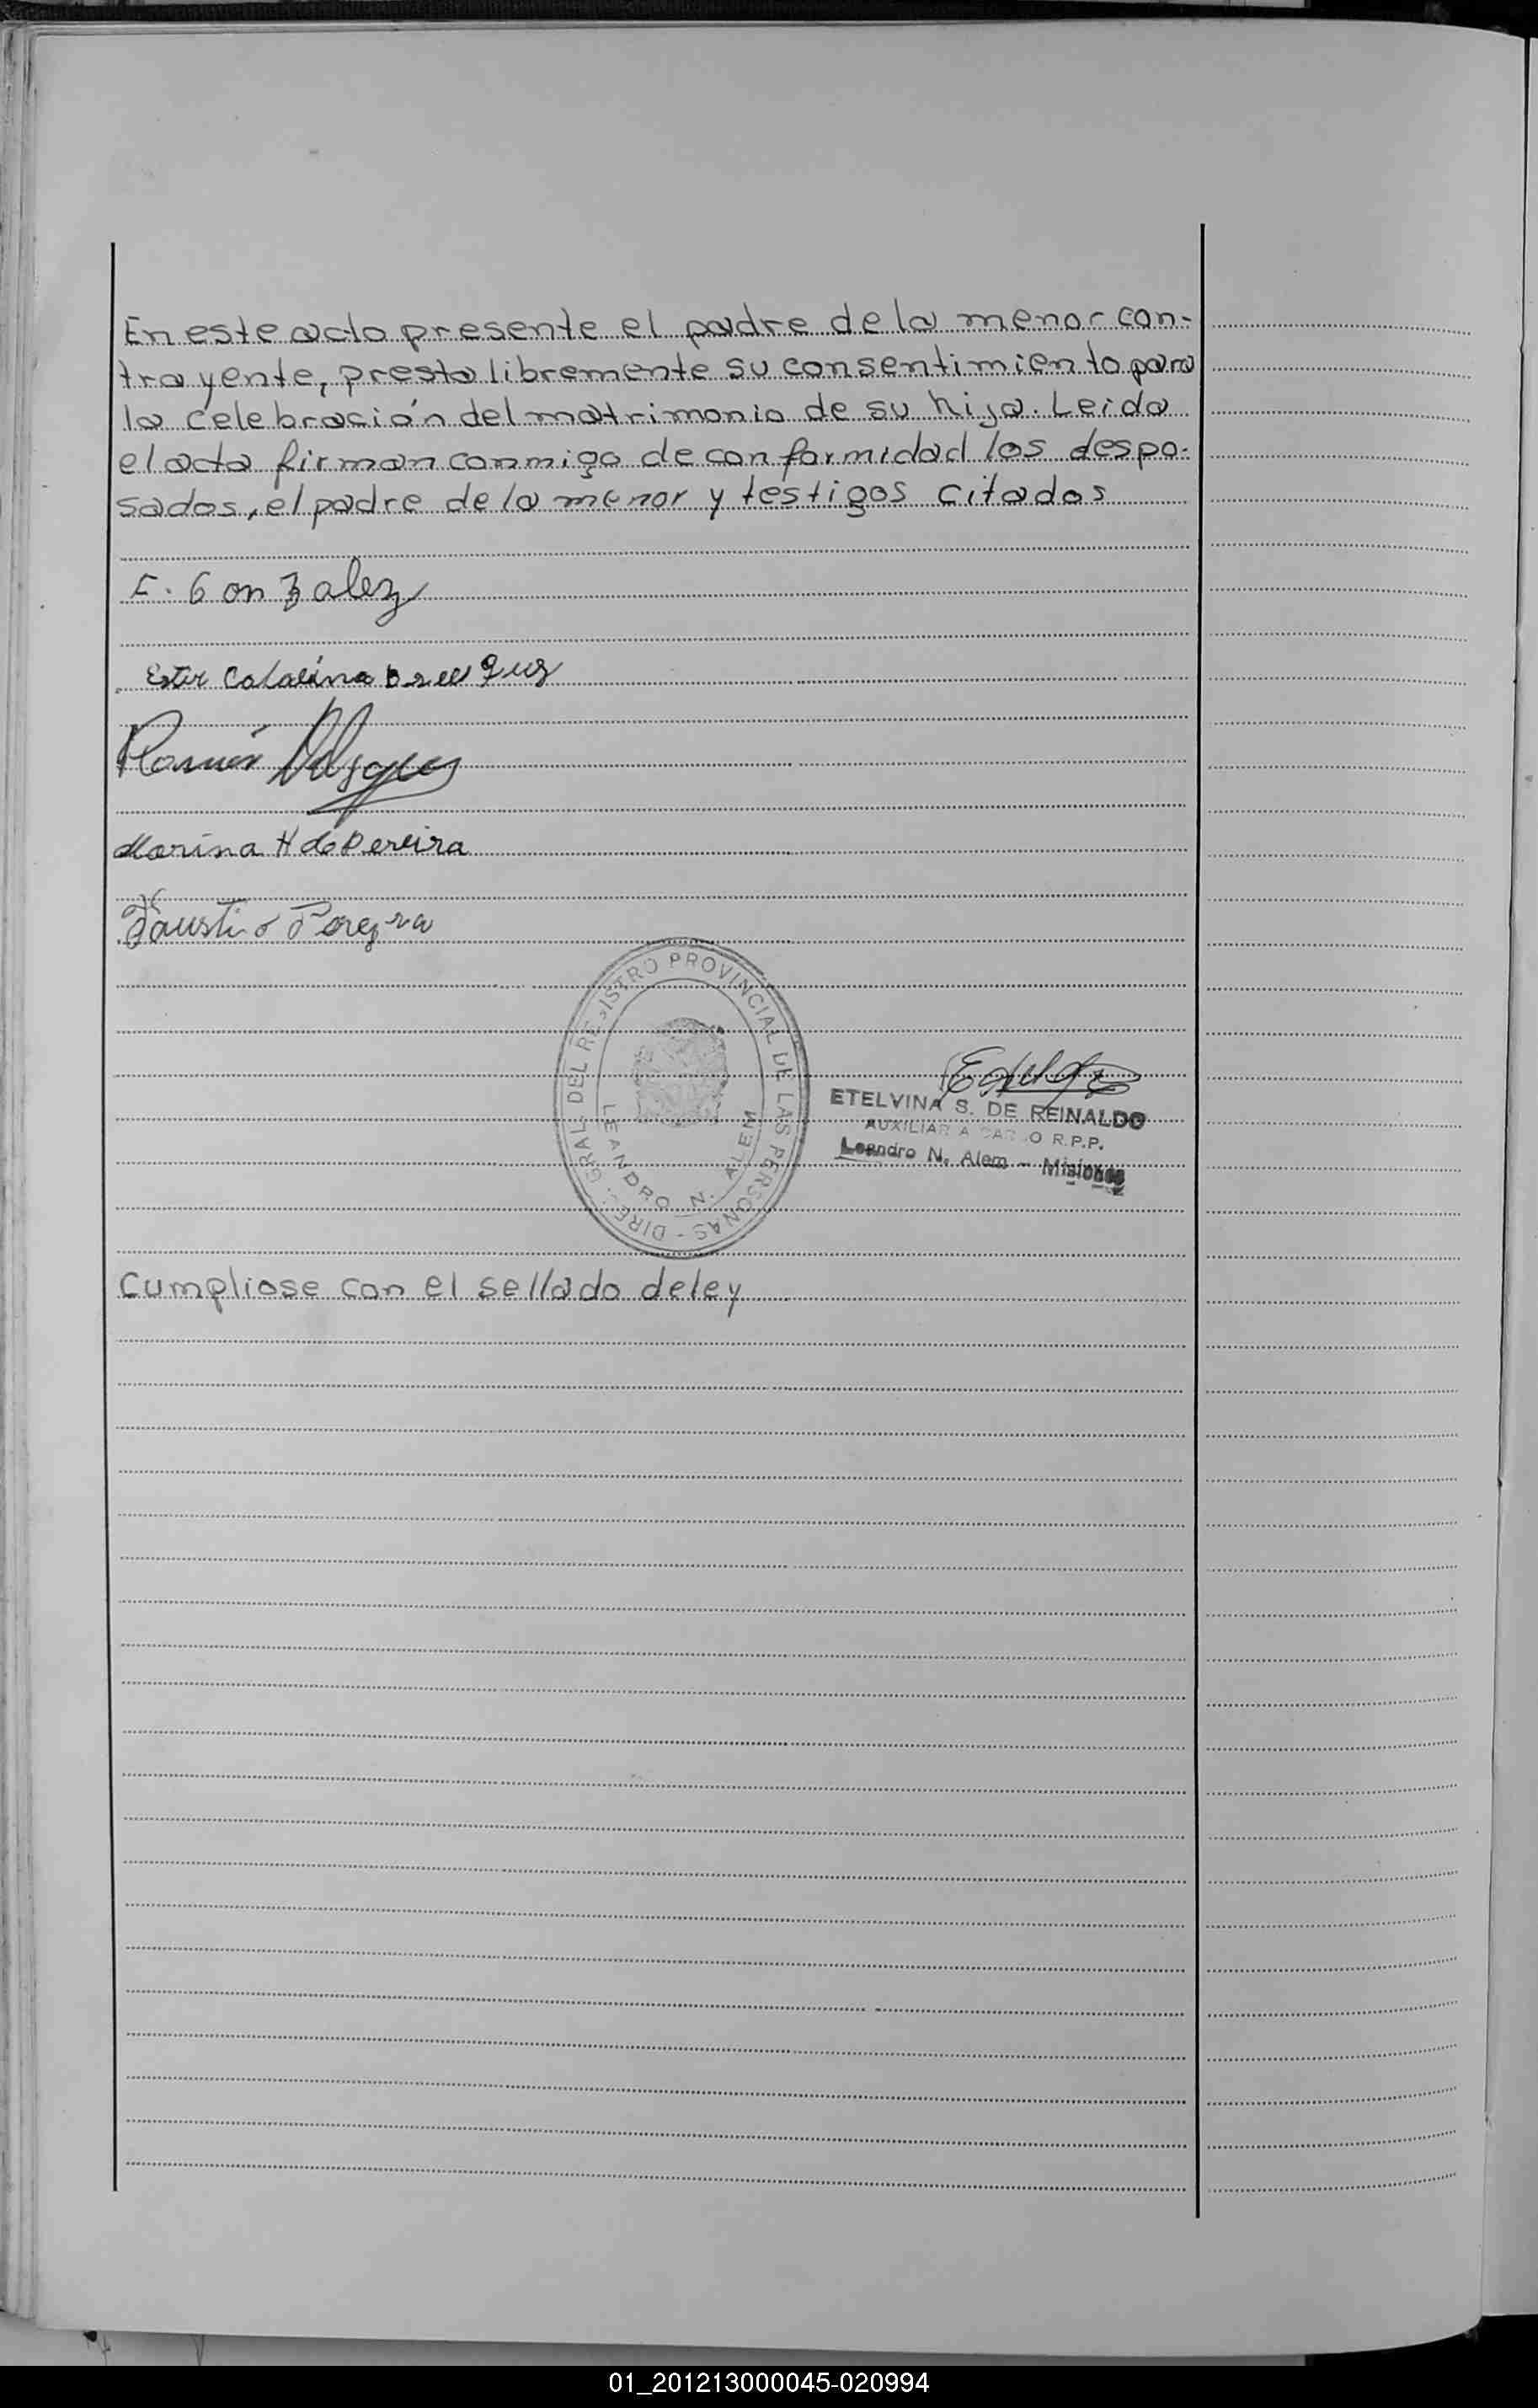 En este acto presente el padre de la menor con-
trayente, presta libremente su consentimiento para
la celebración del matrimonio de su hija. Leida
el acta firman conmigo de conformidad los despo-
sados, el padre de la menor y testigos citados
E. Gonzalez
Ester Catalina
Ramón
Marina H de Pereira
Faustio Pereyra
DIREC. GRAL. DEL REGISTRO PROVINCIAL DE LAS PERSONAS -
LEANDRO N. ALEM
ETELVINA S. DE REINALDO
AUXILIAR A CARGO R.P.P.
Leandro N. Alem - Misiones
Cumpliose con el sellado de ley
01_201213000045-020994